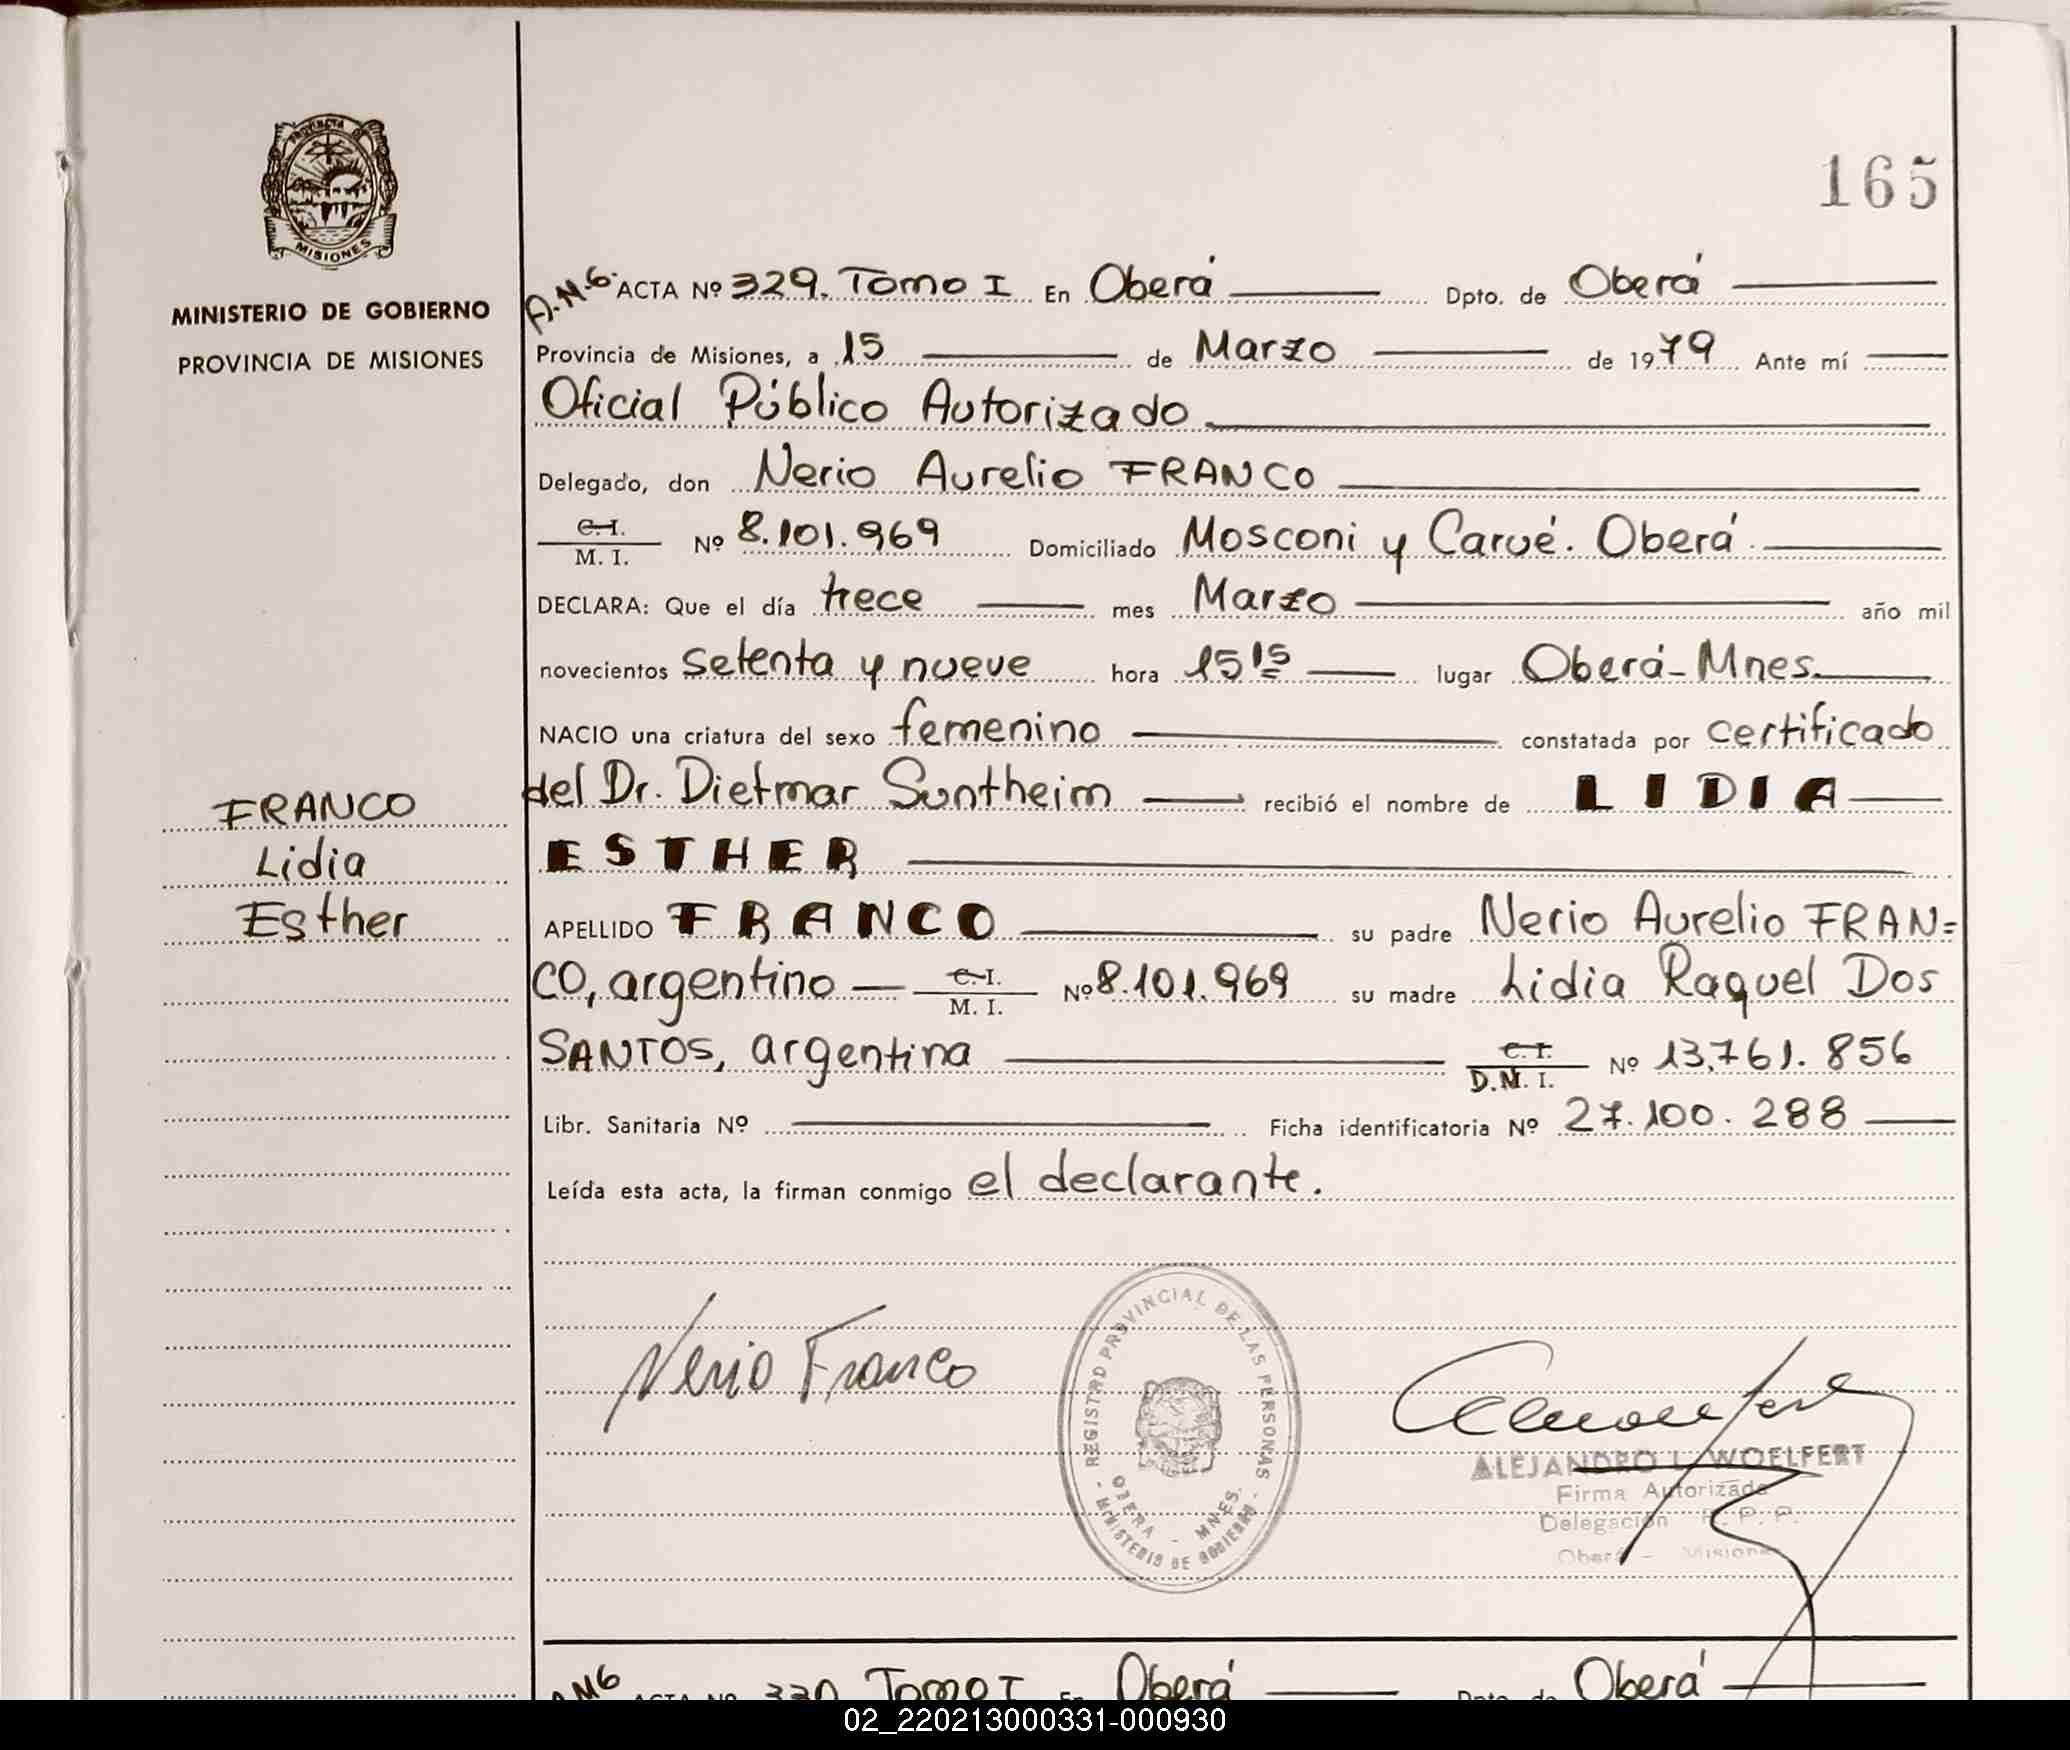 PROVINCIA
MISIONES
MINISTERIO DE GOBIERNO
PROVINCIA DE MISIONES
165
A.M.G. ACTA Nº 329. Tomo I En Oberá Dpto. de Oberá
Provincia de Misiones, a 15 de Marzo de 1979 Ante mí
Oficial Público Autorizado
Delegado, don Nerio Aurelio FRANCO
C.I.
M. I. Nº 8.101.969 Domiciliado Mosconi y Carué. Oberá
DECLARA: Que el día trece mes Marzo año mil
novecientos setenta y nueve hora 15 15 lugar Oberá-Mnes.
NACIO una criatura del sexo femenino constatada por certificado
del Dr. Dietmar Suntheim recibió el nombre de LIDIA
ESTHER
FRANCO
Lidia
Esther
APELLIDO FRANCO su padre Nerio Aurelio FRAN=
CO, argentino C.I.
M. I. Nº 8.101.969 su madre Lidia Raquel Dos
SANTOS, argentina C.I.
D.N. I. Nº 13.761.856
Libr. Sanitaria Nº Ficha identificatoria Nº 27.100.288
Leída esta acta, la firman conmigo el declarante.
Nerio Franco
REGISTRO PROVINCIAL DE LAS PERSONAS
OBERA - MNES.
- MINISTERIO DE GOBIERNO -
ALEJANDRO L. WOELFERT
Firma Autorizada
Delegación R. P. P.
Oberá - Misiones
AMG ACTA Nº 330 Tomo I En Oberá Dpto. de Oberá
02_220213000331-000930